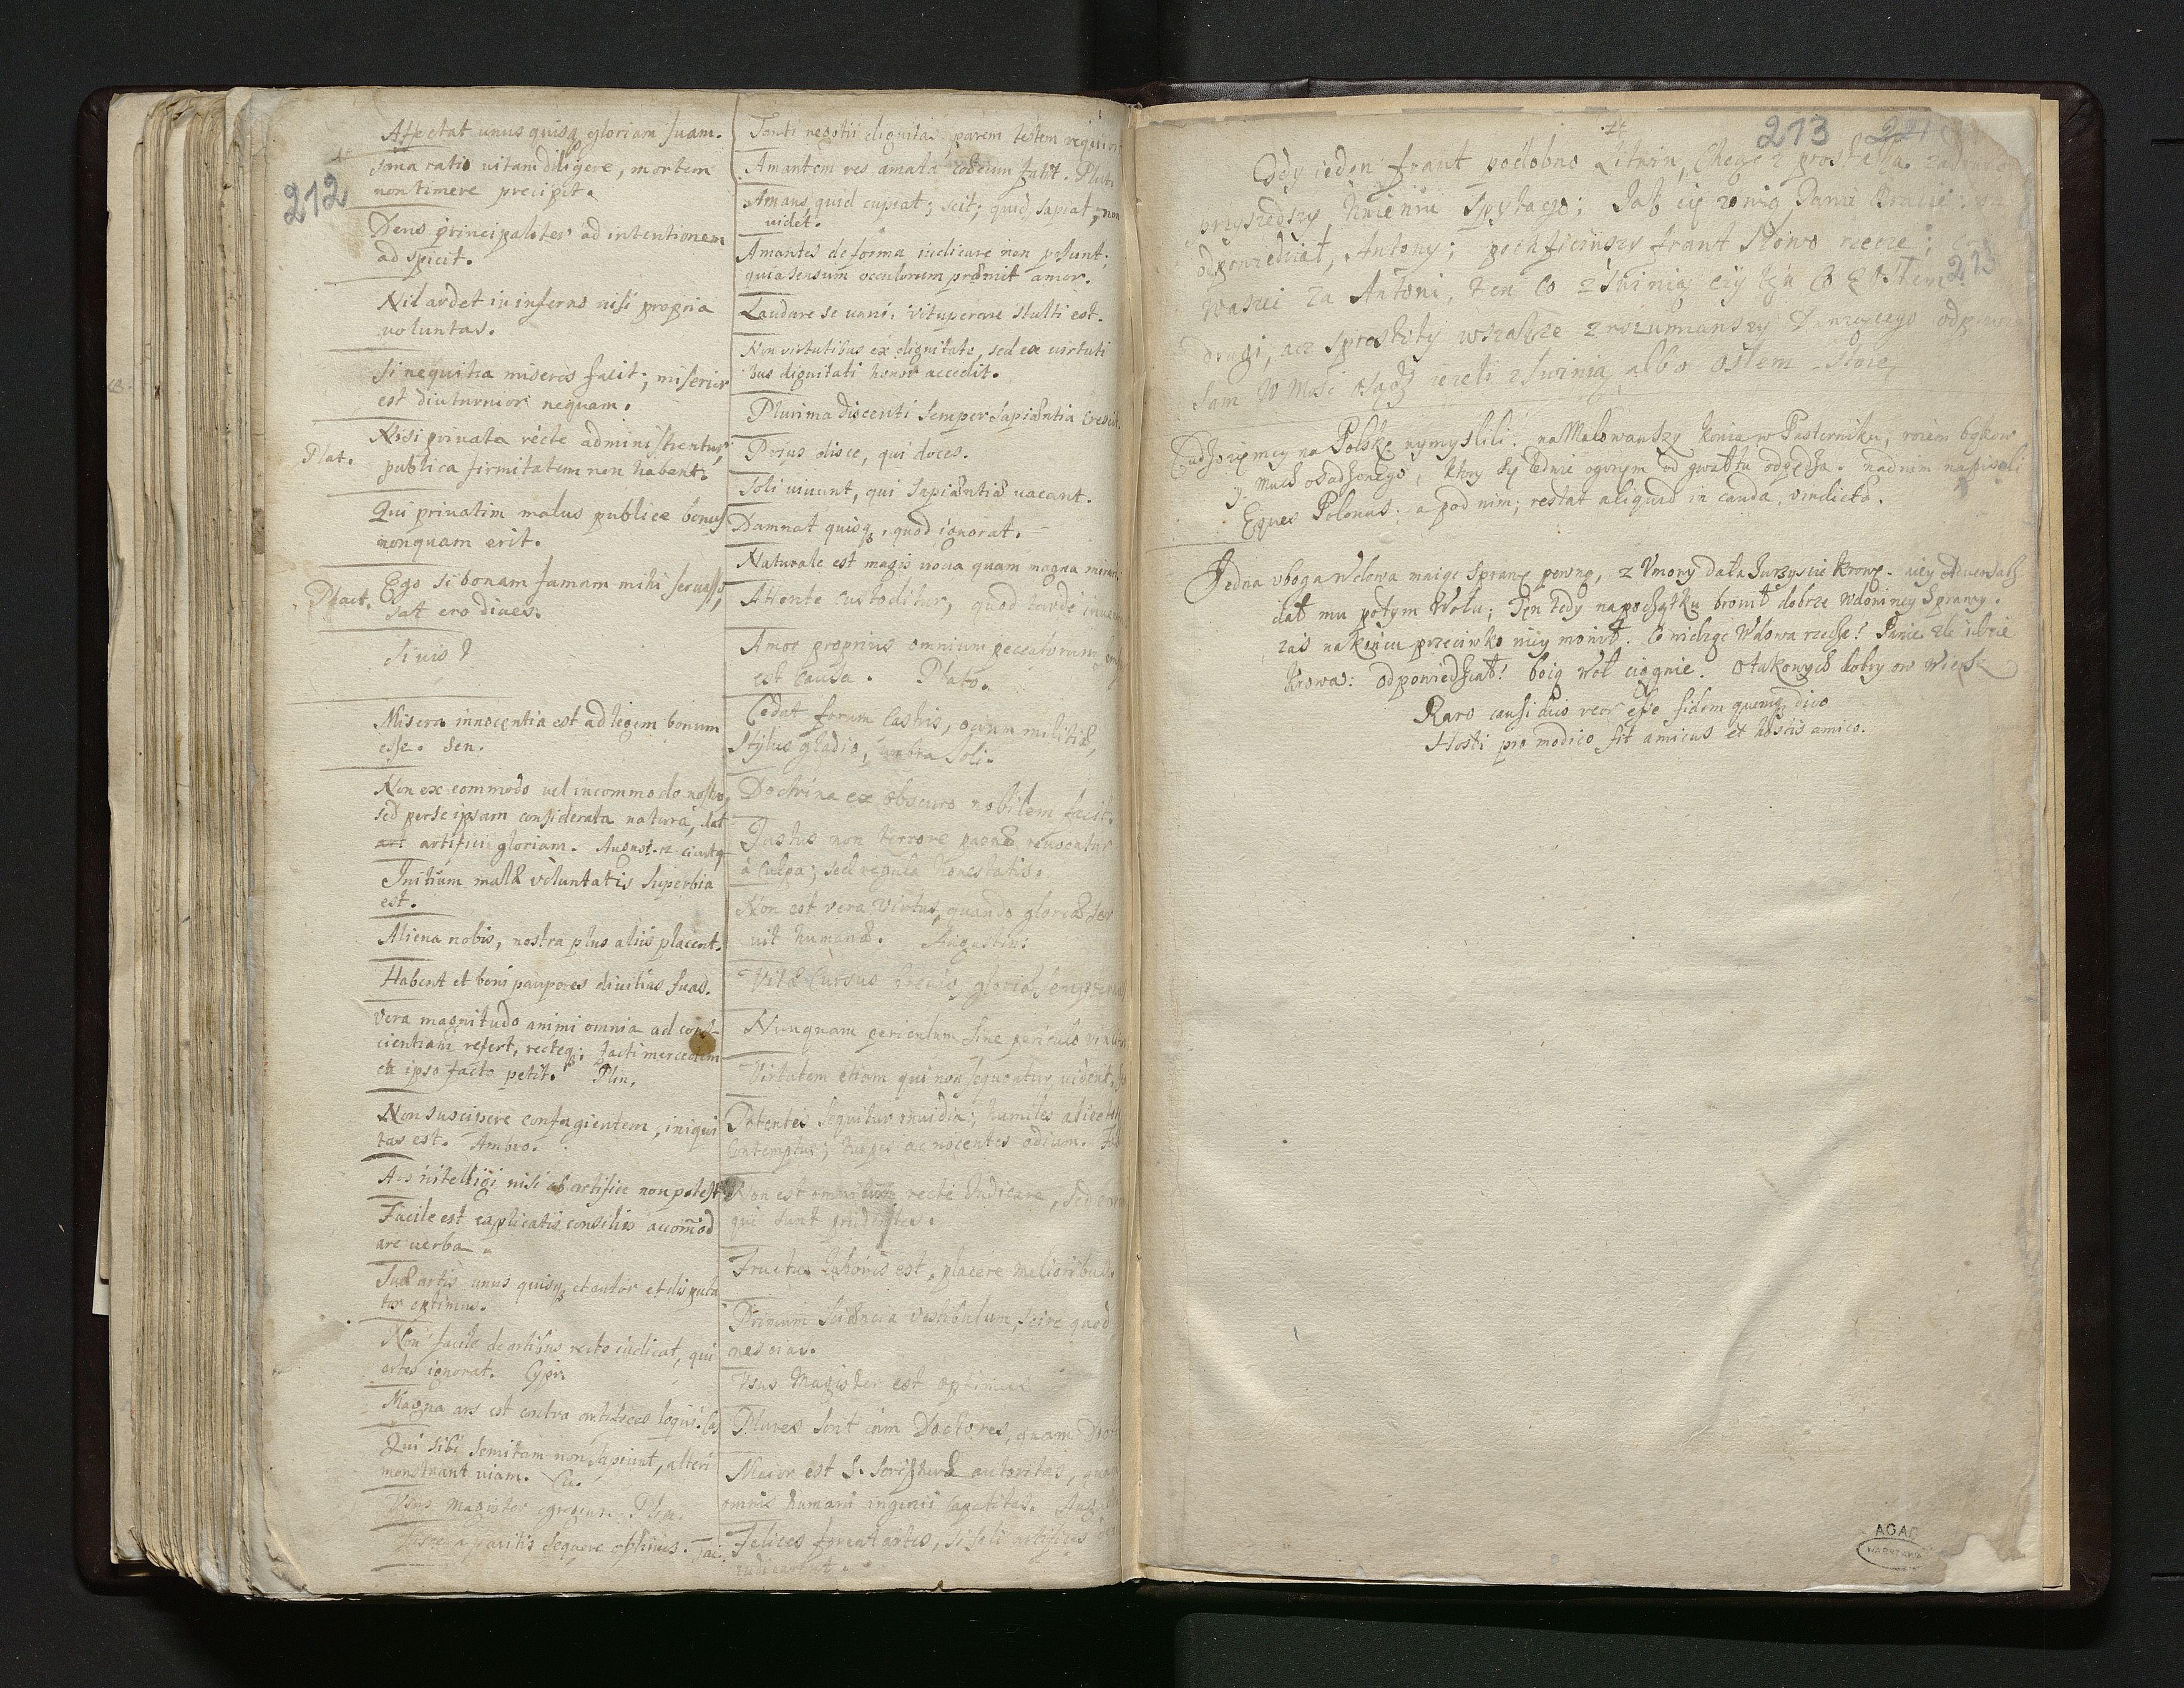 212
Affectat unus quisq; gloriam suam.
sma ratio uitam diligere, mortem
non timere precipit.
Deus principaliter ad intentionem
adspicit.
Nil ardet in inferno nisi propria
uoluntas.
Si nequitia miseros facit; miserior
est diuturnior nequam.
Plat.
Nisi priuata recte administrentur,
publica firmitatem non habent.
Qui priuatim malus publice bonus
nonquam erit.
Plaut.
Ego si bonam famam mihi seruasso,
sat ero diues.
Si uis ?
Misera innocentia est ad legem bonum
esse. Sen.
Non ex commodo uel incommodo nostro,
sed perse ipsam considerata natura, dat
artifici gloriam. August. 12
Initium malæ voluntatis superbia
est.
Aliena nobis, nostra plus aliis placent.
Habent et boni pauperes diuitias suas.
Vera magnitudo animi omnia ad cons-
cientiam refert, recteq; facti mercedem
ex ipso facto petit. Plin.
Non suscipere confugientem, iniqui
tas est. Ambro.
Ars intelligi nisi ab artifice non potest
Facile est explicatis consiliis accomod
are uerba.
Suæ artis unus quisq; et autor et disputa
tor optimus.
Non facile de artibus recte iudicat, qui
artes ignorat. Cypr.
Magna ars est contra artifices loqui.
Qui sibi semitam non sapiunt, alteri
monstrant uiam. Cic.
Vsus magister egregius. Plin.
Disce a peritis sequere optimus. Tac.
Tanti negotii dignitas parem testem requirit
Amantem res amata Plut.
Amans, quid cupiat; scit; quid sapiat, non
uidet.
Amantes de forma iudicare non possunt;
quia sensum occulorum præmit amor.
Laudare se uani, vituperare stulti est.
Non virtutibus ex dignitate, sed ex uirtuti
bus dignitati honor accedit.
Plurima discenti semper sapiæntia crescit.
Prius disce, qui doces.
Soli uiuunt, qui sapiæntiæ uacant.
Damnat quisq;, quod ignorat.
Naturale est magis noua quam magna mirari
Attente custoditur, quod tarde
Amor proprius omnium peccatorum
est causa. Plato.
Cedat forum castris, ocium militiæ,
Stylus gladio, umbra soli.
Doctrina ex obscuro nobilem facit.
Justus non terrore pænæ reuocatur
a culpa; sed regula honestatis.
Non est vera virtus, quando gloriæ ser
uit humanæ. Augustin:
Vitæ cursus breuis, gloriæ sempiternus
Nunquam periculum sine periculo
Virtutem etiam qui non sequuntur, uident.
Potentes sequitur inuidia; humiles
Contemptus; turpes ac nocentes odium.
Non est omnium recte Iudicare, sed
qui sunt prudentes.
Fructus laboris est, placere melioribus.
Primum sciæncia vestibulum, scire quod
nescias.
Vsus Magister est optimus
Plures sunt Doctores, quam
Maior est S. Scripturæ autoritas, quam
omnis humani ingenii capacitas. Aug
Felices forent artes, si soli artifices
iudicarent.
213
Gdy ieden frant podobno Litwin, Chcąc z prostaka
przyszedszy Imieniu spytał go; Jak cię zowią Panie Bracie:
odpowiedział, Antony; pochficiwszy frant słowo rzecze;
waszei za Antoni, ten co z swinią czy ten co z osłem
213
drugi, acz sprosthoty wszakze zrozumiawszy odpowie
sam W Mosc osądz iezeli z swinią albo osłem stoię
Cudzoziemcy na Polskę wymyslili: na Malowawszy konia w Pasterniku, roiem bykow
y much obsadzonego, ktory się ledwie ogonym od gwałtu odpędza. nadnim napisali
Eques Polonus: a pod nim; restat aliquid in cauda vindictæ.
Jedna vboga wdowa maiąc sprawę pewną, z Vmowy dała Jurzyscie krowę. iey Adwersarz
dał mu potym Wołu; Ten tedy na początku bronił dobrze wdowiney sprawy.
zas na końcu przeciwko niey mowił. Co widząc Wdowa rzecze! Panie zle idzie
krowa: odpowiedział! boią woł ciągnie. O takowych dobry ow Wiersz
Raro causidico reor esse fidem quemq; diuo
Hosti pro modico fit amicus et hostis amico.
AGAD
WARSZAWA